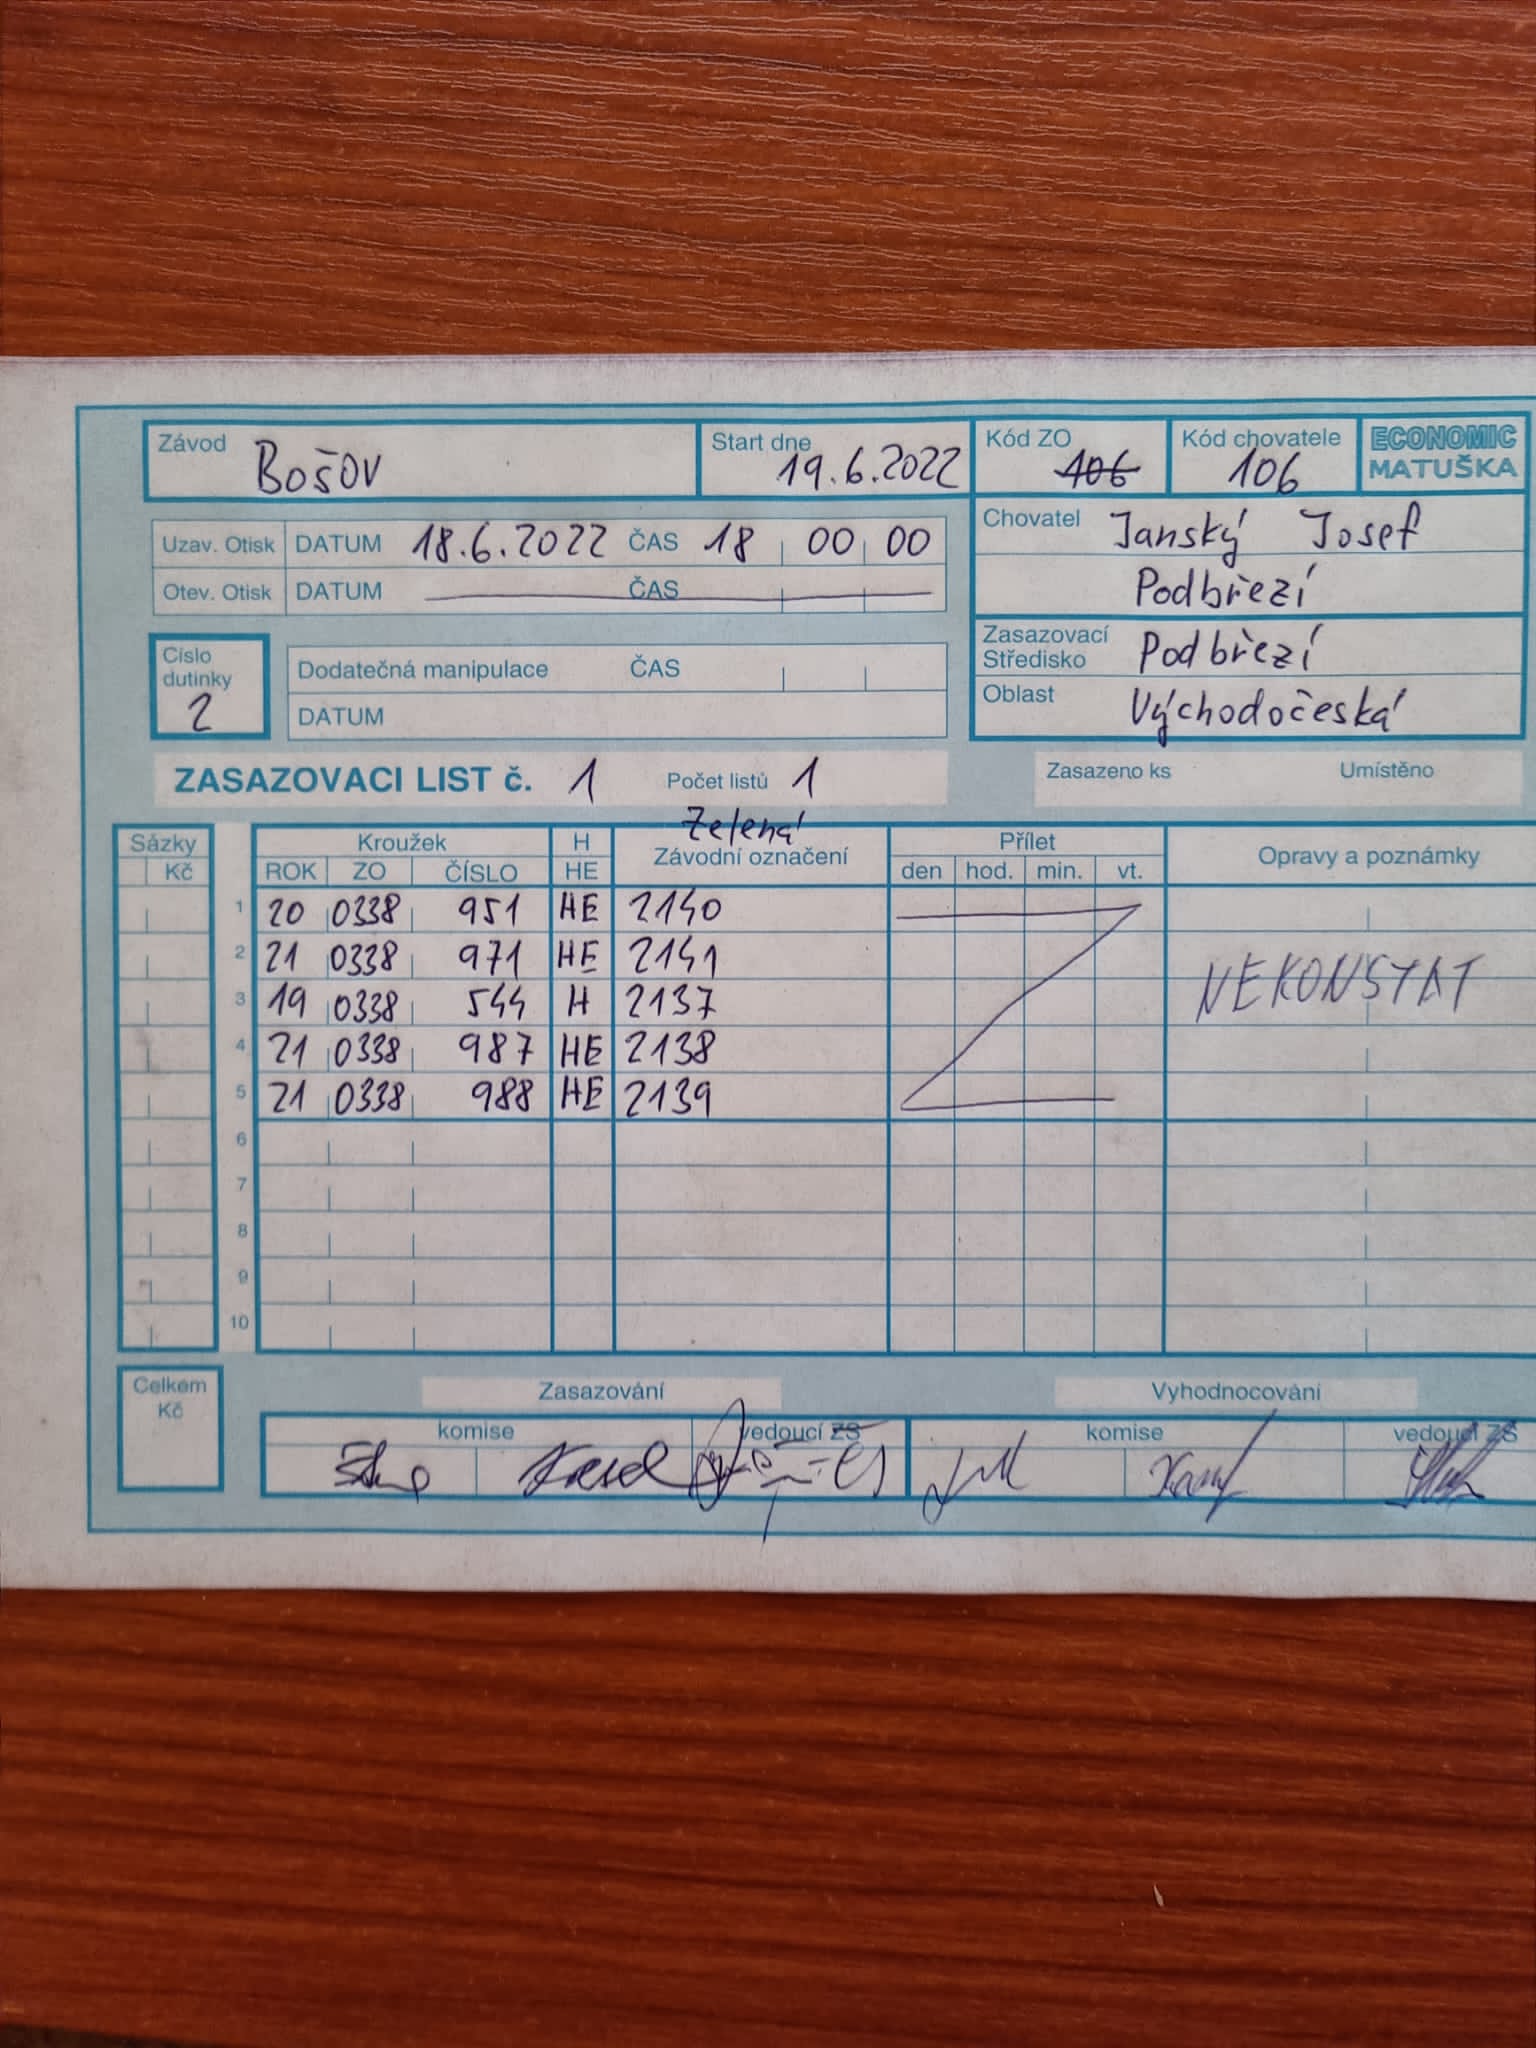 Závod Bošov Start dne 19.6.2022 Kód ZO 106 Kód chovatele 106 ECONOMIC MATUŠKA
Uzav. Otisk DATUM 18.6.2022 ČAS 18 00 00
Otev. Otisk DATUM ČAS
Chovatel Janský Josef
Podbřezí
Číslo dutinky 2
Dodatečná manipulace ČAS
DATUM
Zasazovací Středisko Podbřezí
Oblast Východočeská
ZASAZOVACI LIST č. 1 Počet listů 1
Zasazeno ks Umístěno
Zelená
Sázky Kroužek H Závodní označení Přílet Opravy a poznámky
Kč ROK ZO ČÍSLO HE den hod. min. vt.
1 20 0338 951 HE 2140
2 21 0338 971 HE 2141
3 19 0338 544 H 2137
4 21 0338 987 HE 2138
5 21 0338 988 HE 2139
NEKONSTAT
6
7
8
9
10
Celkem Kč
Zasazování Vyhodnocování
komise vedoucí ZS komise vedoucí ZS